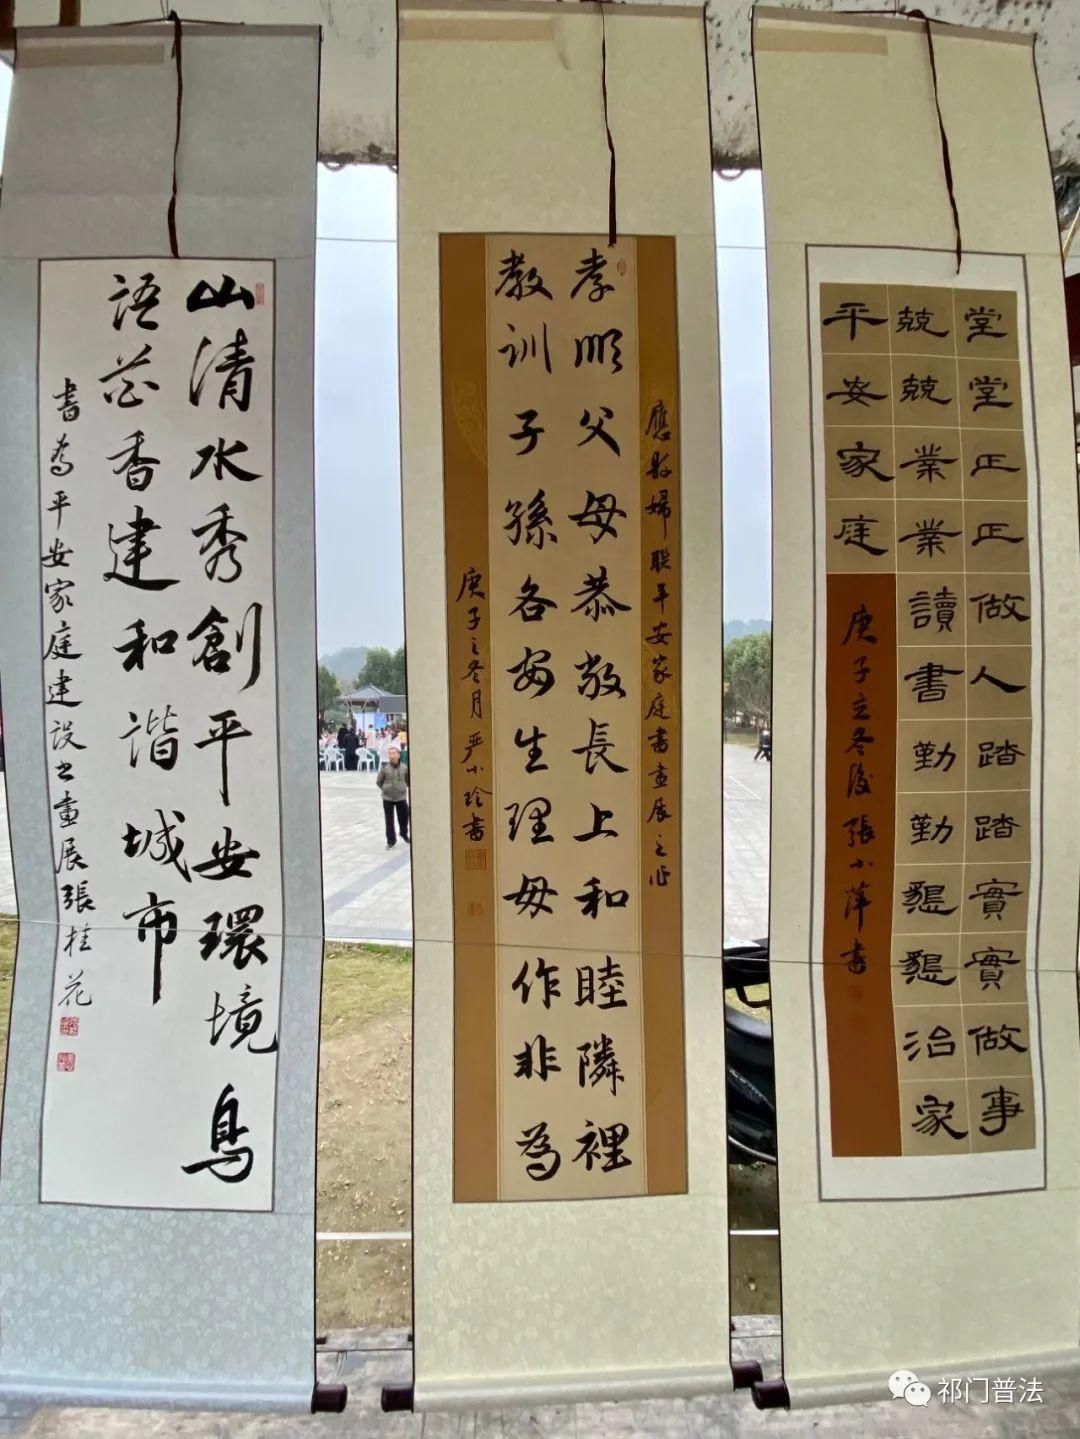 堂堂正正做人踏踏實實做事
兢兢業業讀書勤勤懇懇治家
平安家庭
庚子立冬後張小萍書
應縣婦聯平安家庭書畫展之作
孝順父母恭敬長上和睦隣裡
教訓子孫各安生理毋作非為
庚子之冬月严小玲書
山清水秀創平安環境鳥
語花香建和諧城市
書為平安家庭建设书畫展張桂花
祁门普法